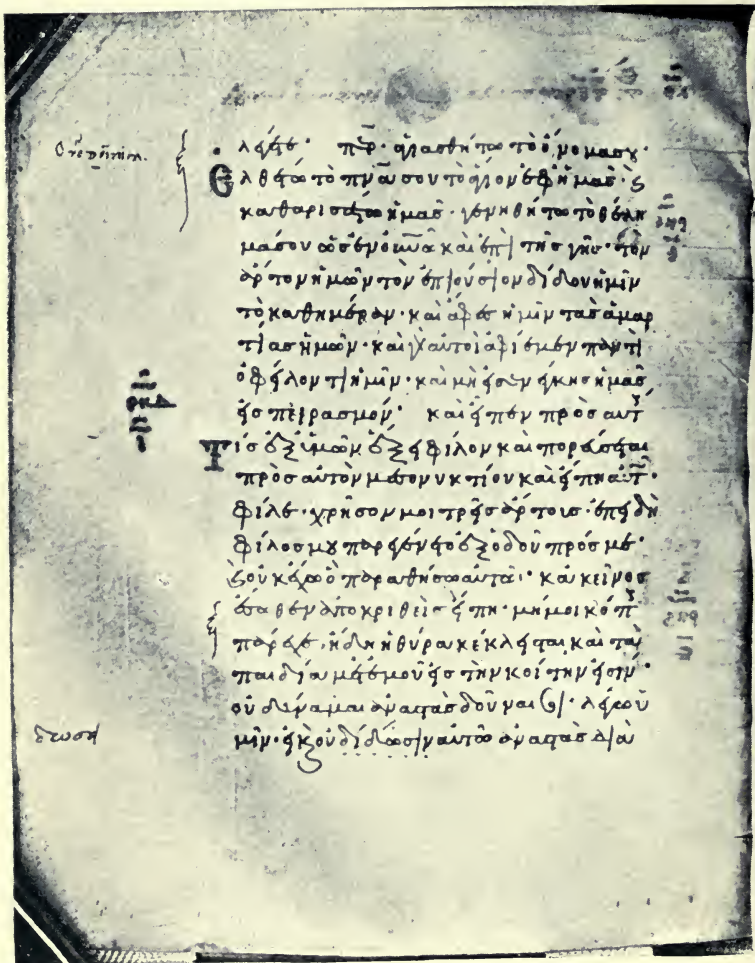 λέγετε· περ· ἁγιασθήτω τὸ ὄνομά σου·
Ἐλθέτω τὸ πνα σου τὸ ἅγιον ἐφ ἡμᾶς· ϗ
καθαρισάτω ἡμᾶς· γενηθήτω τὸ θέλη
μά σου ὡς ἐν οὐνω καὶ ἐπὶ τῆς γῆς· τὸν
ἄρτον ἡμῶν τὸν ἐπιούσιον δίδου ἡμῖν
τὸ καθημέραν· καὶ ἄφες ἡμῖν τὰς ἁμαρ
τίας ἡμῶν· καὶ γὰρ αὐτοὶ ἀφίεμεν παντὶ
ὀφείλοντι ἡμῖν· καὶ μὴ εἰσενείκης ἡμᾶς
εἰς πειρασμόν· καὶ εἶπεν πρὸς αὐτ
Τίς ἐξ ὑμῶν ἕξει φίλον καὶ πορεύσεται
πρὸς αὐτὸν μεσονυκτίου καὶ εἴπη αὐτ·
φίλε· χρῆσον μοι τρεῖς ἄρτους· ἐπειδὴ
φίλος μου παρεγένετο ἐξ ὁδοῦ πρός με·
ϗ οὐκ ἔχω ὃ παραθήσω αὐτῶ· κακεῖνος
ἔσωθεν ἀποκριθεὶς εἴπη· μή μοι κόπ
πάρεχε· ἤδη ἡ θύρα κέκλεισται καὶ τὰ
παιδία μετ ἐμοῦ εἰς τὴν κοίτην εἰσίν·
οὐ δύναμαι ἀναστὰς δοῦναί σοι· λέγω ὑ
δώσει
μῖν· εἰ ϗ οὐ δίδωσιν αὐτῶ ἀναστὰς διὰ